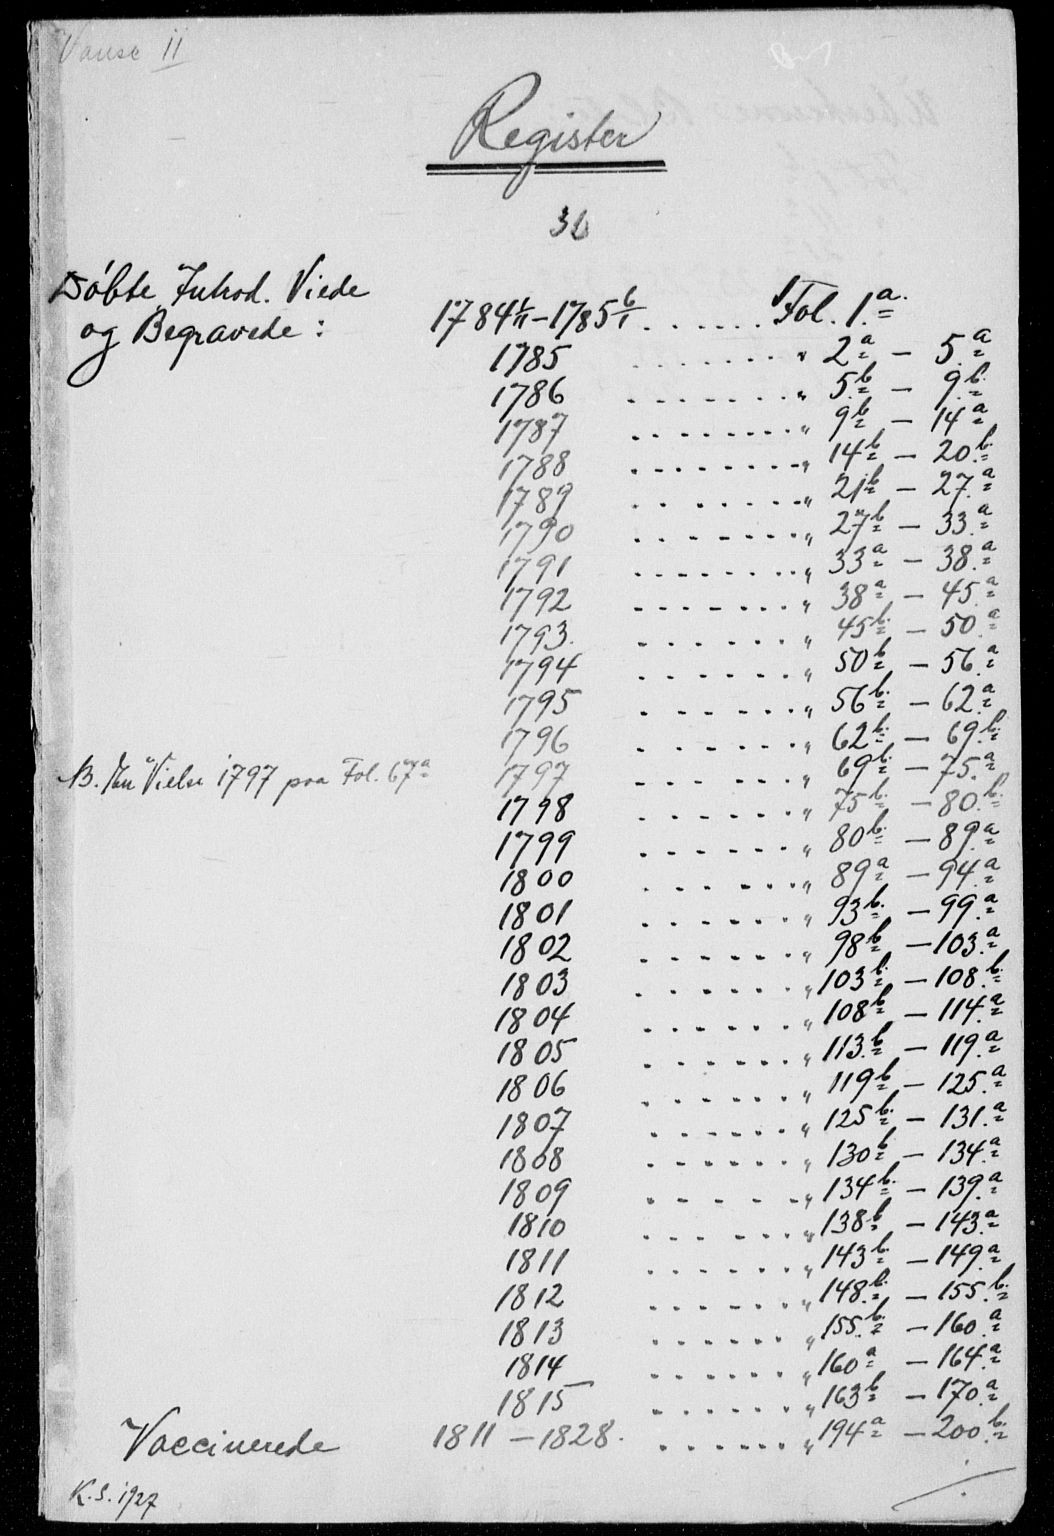 Vanse II
Register
Døbte, Introd. Viede
og Begravede: 1784 1/11 – 1785 6/1 ....... Fol. 1.a
1785 ....... " 2a – 5.a
1786 ....... " 5.b – 9.b
1787 ....... " 9b – 14a
1788 ....... " 14b – 20.b
1789 ....... " 21b – 27.a
1790 ....... " 27b – 33.a
1791 ....... " 33a – 38.a
1792 ....... " 38a – 45.a
1793. ....... " 45b – 50.a
1794 ....... " 50b – 56.a
1795 ....... " 56b – 62.a
1796 ....... " 62b – 69.b
NB. En Vielse 1797 paa Fol. 67a 1797 ....... " 69b – 75.a
1798 ....... " 75b – 80.b
1799 ....... " 80b – 89.a
1800 ....... " 89a – 94.a
1801 ....... " 93b – 99.a
1802 ....... " 98b – 103.a
1803 ....... " 103b – 108.b
1804 ....... " 108b – 114.a
1805 ....... " 113.b – 119.a
1806 ....... " 119b – 125.a
1807 ....... " 125b – 131.a
1808 ....... " 130b – 134.a
1809 ....... " 134b – 139.a
1810 ....... " 138b – 143.a
1811 ....... " 143b – 149.a
1812 ....... " 148.b – 155.b
1813 ....... " 155.b – 160.a
1814 ....... " 160a – 164.a
1815 ....... " 163b – 170.a
Vaccinerede 1811 – 1828. ....... " 194a – 200.b
K.S. 1927